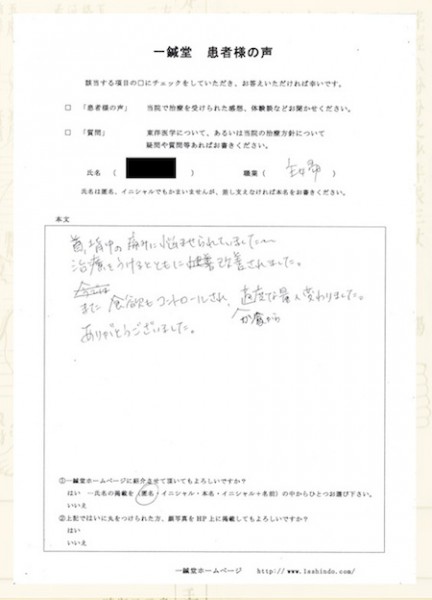 一鍼堂 患者様の声
該当する項目の□にチェックをしていただき、お答えいただければ幸いです。
□ 「患者様の声」 当院で治療を受けられた感想、体験談などお聞かせください。
□ 「質問」 東洋医学について、あるいは当院の治療方針について
疑問や質問等あればお書きください。
氏名 ( ) 職業 ( 主婦 )
氏名は匿名、イニシャルでもかまいませんが、差し支えなければ本名をお書きください。
本文
首、背中の痛みに悩ませられていましたが
治療をうけるとともに改善されました。
また 食欲もコントロールされ、適度な量に変わりました。
ありがとうございました。
①一鍼堂ホームページに紹介させて頂いてもよろしいですか?
はい →氏名の掲載を(匿名・イニシャル・本名・イニシャル+名前)の中からひとつお選び下さい。
いいえ
②上記ではいに丸をつけられた方、顔写真をHP上に掲載してもよろしいですか?
はい
いいえ
一鍼堂ホームページ http://www.isshindo.com/